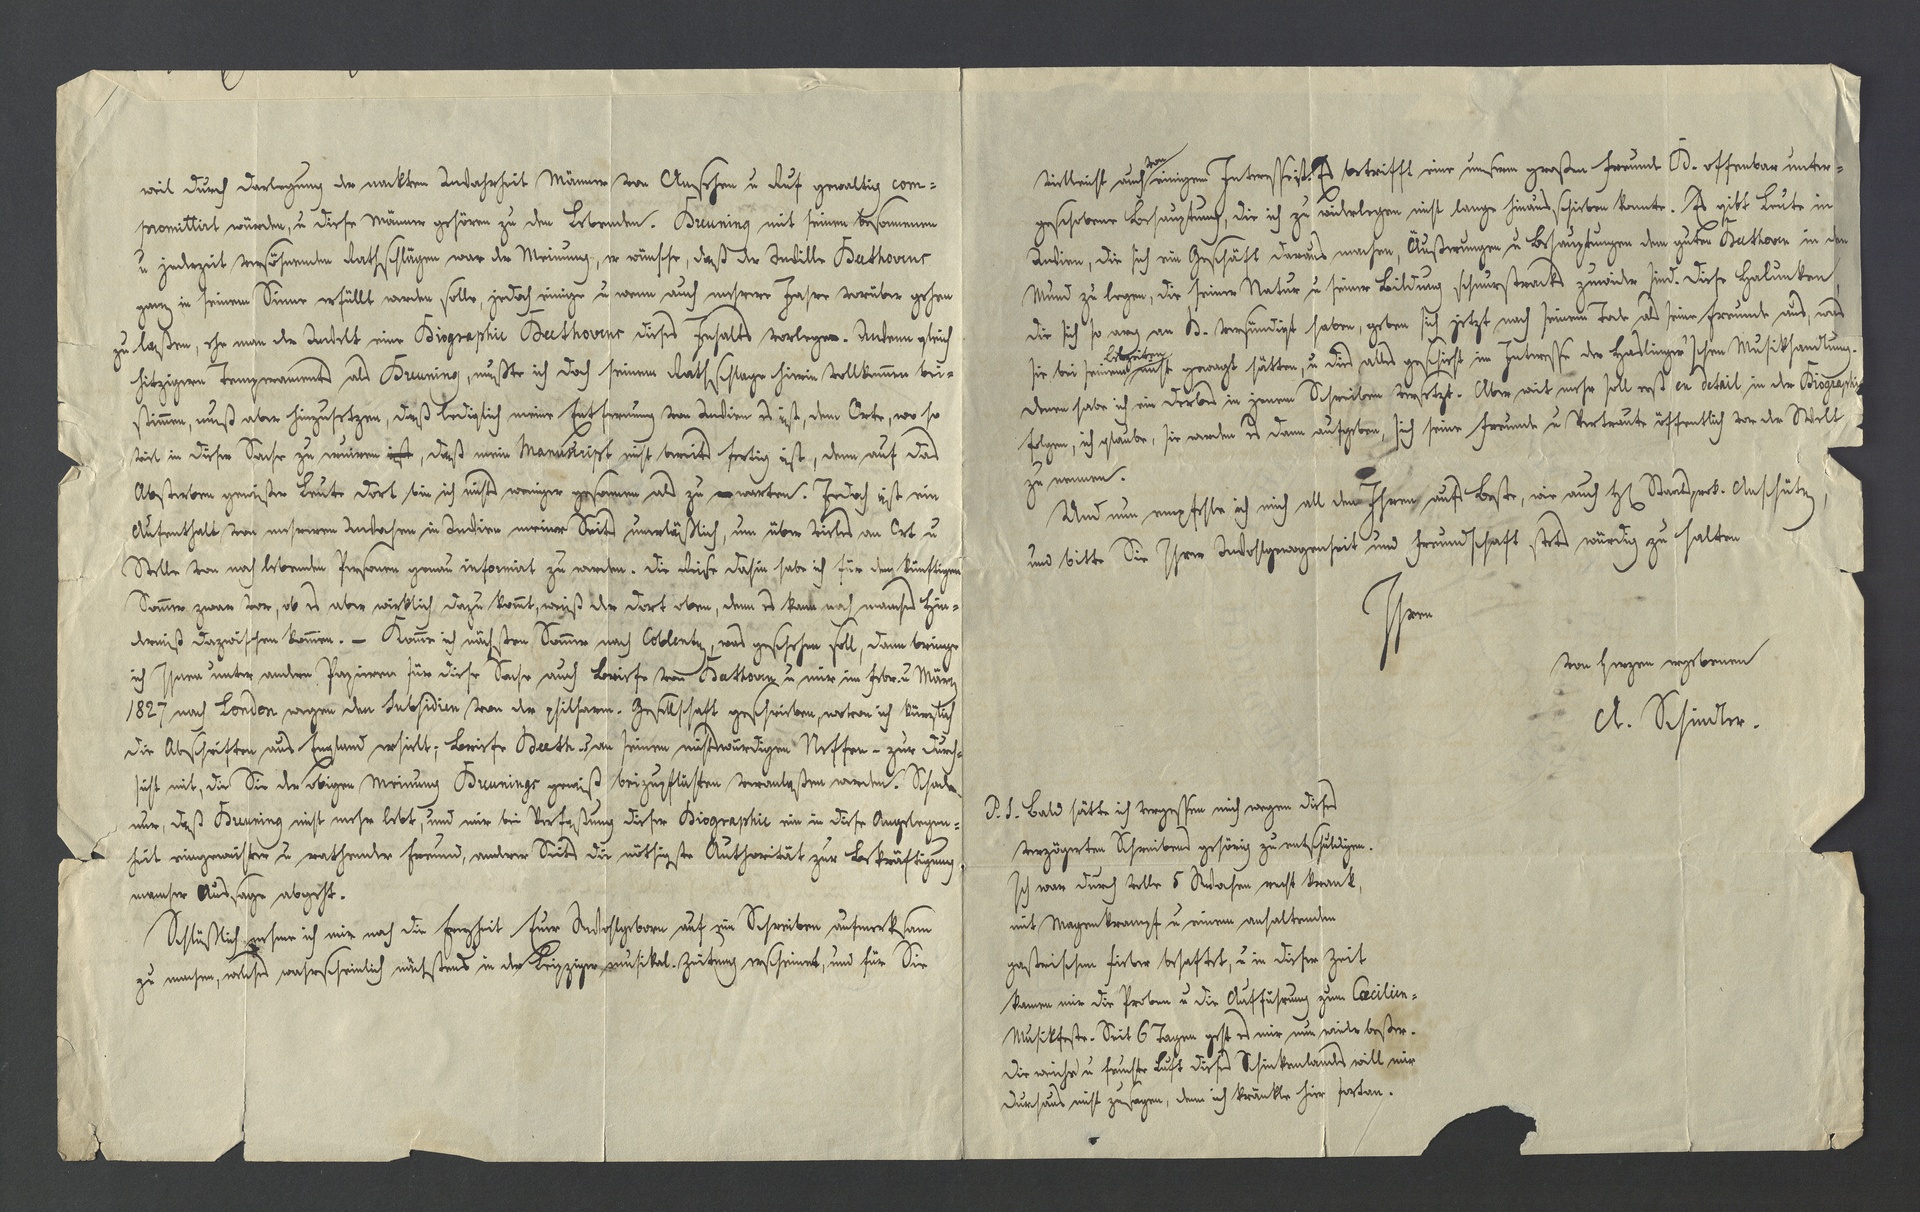 weil durch Darlegung der nackten Wahrheit Männer von Ansehen u Ruf gewaltig com=
promittirt würden, u diese Männer gehören zu den Lebenden. Breuning mit seinen besonnenen
u jederzeit versöhnenden Rathschlägen war der Meinung, er wünsche, daß der Wille Beethovens
ganz in seinem Sinne erfüllt werden solle, jedoch einige u wenn auch mehrere Jahre vorüber gehen
zu laßen, ehe man der Welt eine Biographie Beethovens dieses Inhalts vorlege. Wenn gleich
hitzigern Temperaments als Breuning, mußte ich doch seinem Rathschlage hierin vollkommen bei=
stimmen, muß aber hinzusetzen, daß lediglich meine Entfernung von Wien es ist, dem Orte, wo so
viel in dieser Sache zu eruiren ist, daß mein Manuskript nicht bereits fertig ist, denn auf das
Absterben gewißer Leute dort bin ich nichts weniger gesonnen als zu warten. Jedoch ist ein
Aufenthalt von mehreren Wochen in Wien meiner Seits unerläßlich, um über vieles an Ort u
Stelle von noch lebenden Personen genau informirt zu werden. Die Reise dahin habe ich für den künftigen
Somer zwar vor, ob es aber wirklich dazu komt, weiß der dort oben, denn es kann noch manches Hin=
derniß dazwischen komen. – Kome ich nächsten Somer nach Coblentz, was geschehen soll, dann bringe
ich Ihnen unter andern Papieren für diese Sache auch Briefe von Beethoven u mir im Febr. u März
1827 nach London wegen den Subsidien von der philharm. Gesellschaft geschrieben, wovon ich kürzlich
die Abschriften aus England erhielt; Briefe Beeth.s an seinen nichtswürdigen Neffen – zur Durch=
sicht mit, die Sie der obigen Meinung Breunings gewiß beizupflichten veranlaßen werden. Schade
nur, daß Breuning nicht mehr lebt, und mir bei Verfaßung dieser Biographie ein in diese Angelegen=
heit eingeweihter u rathender Freund, anderer Seits die nöthigste Authorität zur Bekräftigung
mancher Aussage abgeht.
Schlüßlich nehme ich mir noch die Freyheit Euer Wohlgeborn auf ein Schreiben aufmerksam
zu machen, welches wahrscheinlich nächstens in der Leipziger musikal. Zeitung erscheinet, und für Sie
vielleicht auch von einigem Interesse ist. Es betrifft eine unserm großen Freunde B. offenbar unter=
geschobene Behauptung, die ich zu widerlegen nicht lange hinaus schieben konnte. Es gibt Leute in
Wien, die sich ein Geschäft daraus machen, Äußerungen u Behauptungen dem guten Beethoven in den
Mund zu legen, die seiner Natur u seiner Bildung schnurstracks zuwider sind. Diese Halunken,
die sich so arg an B. versündiget haben, geben sich jetzt nach seinem Tode als seine Freunde aus, was
sie bei seinen Lebzeiten nicht gewagt hätten, u dies alles geschieht im Interesse der Haslinger'schen Musikhandlung.
Denen habe ich ein derbes in jenem Schreiben versetzt. Aber weit mehr soll erst en detail in der Biographie
folgen, ich glaube, sie werden es dann aufgeben, sich seine Freunde u Vertraute öffentlich vor der Welt
zu nennen.
Und nun empfehle ich mich all den Ihren aufs Beste, wie auch H Staatsprok. Anschütz,
und bitte Sie Ihrer Wohlgewogenheit und Freundschaft stets würdig zu halten
Ihren
von Herzen ergebenen
A. Schindler.
P. S. Bald hätte ich vergessen mich wegen dieses
verzögerten Schreibens gehörig zu entschuldigen.
Ich war durch volle 5 Wochen recht krank,
mit Magenkrampf u einem anhaltenden
gastrischen Fieber behaftet, u in dieser Zeit
kamen mir die Proben u die Aufführung zum Cæcilien=
Musikfeste. Seit 6 Tagen geht es mir nun wieder beßer.
Die weiche u feuchte Luft dieses Schinkenlandes will mir
durchaus nicht zusagen, denn ich kränkle hier fortan.